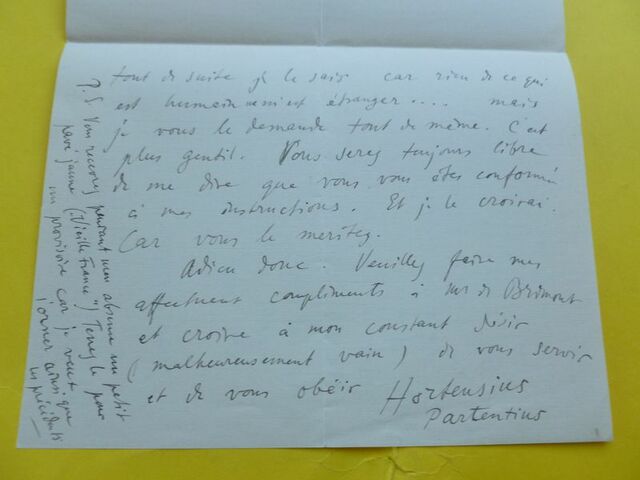 tout de suite je le sais car rien de ce qui
est humain ne m'est étranger.... mais
je vous le demande tout de même. C'est
plus gentil. Vous serez toujours libre
de me dire que vous vous êtes conformé
à mes instructions. Et je le croirai.
Car vous le méritez.
Adieu donc. Veuillez faire mes
affectueux compliments à Mr de Brimont
et croire à mon constant désir
(malheureusement vain) de vous servir
et de vous obéir Hortensius
Partentius
P.S Vous recevrez pendant mon absence un petit
pavé jaune (Vieille France") Tenez le pour
un provisoire car je veux
l'orner ainsi que
les précédents